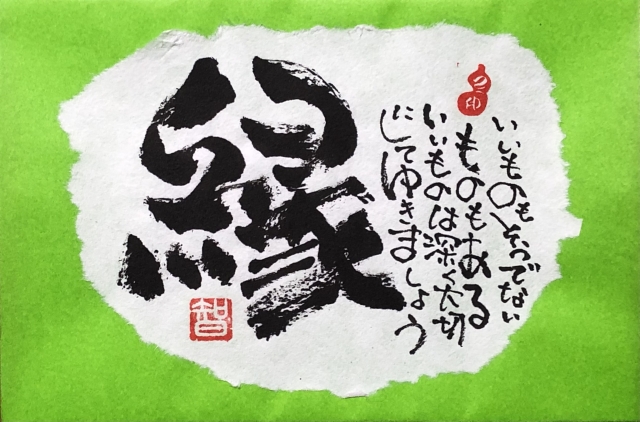 いいものもそうでない
ものもある
いいものは深く大切
にしてゆきましょう
縁
智